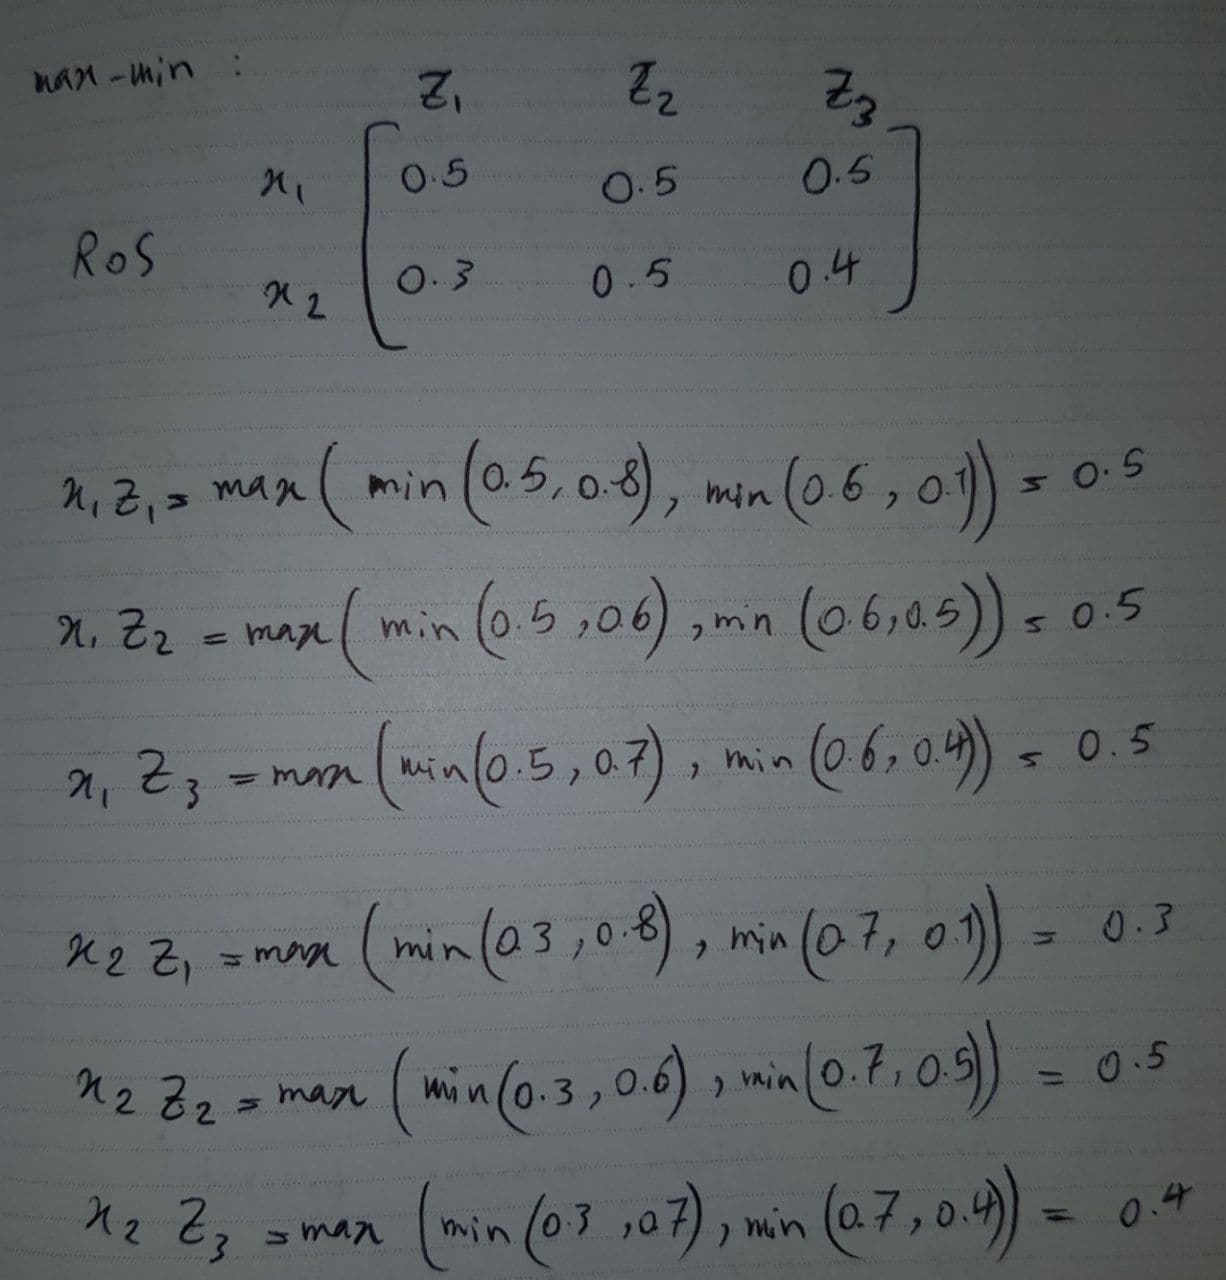 max-min :
Z₁ Z₂ Z₃
x₁ 0.5 0.5 0.5
RoS
x₂ 0.3 0.5 0.4
x₁Z₁ = max(min(0.5, 0.8), min(0.6, 0.1)) = 0.5
x₁Z₂ = max(min(0.5, 0.6), min(0.6, 0.5)) = 0.5
x₁Z₃ = max(min(0.5, 0.7), min(0.6, 0.4)) = 0.5
x₂Z₁ = max(min(0.3, 0.8), min(0.7, 0.1)) = 0.3
x₂Z₂ = max(min(0.3, 0.6), min(0.7, 0.5)) = 0.5
x₂Z₃ = max(min(0.3, 0.7), min(0.7, 0.4)) = 0.4